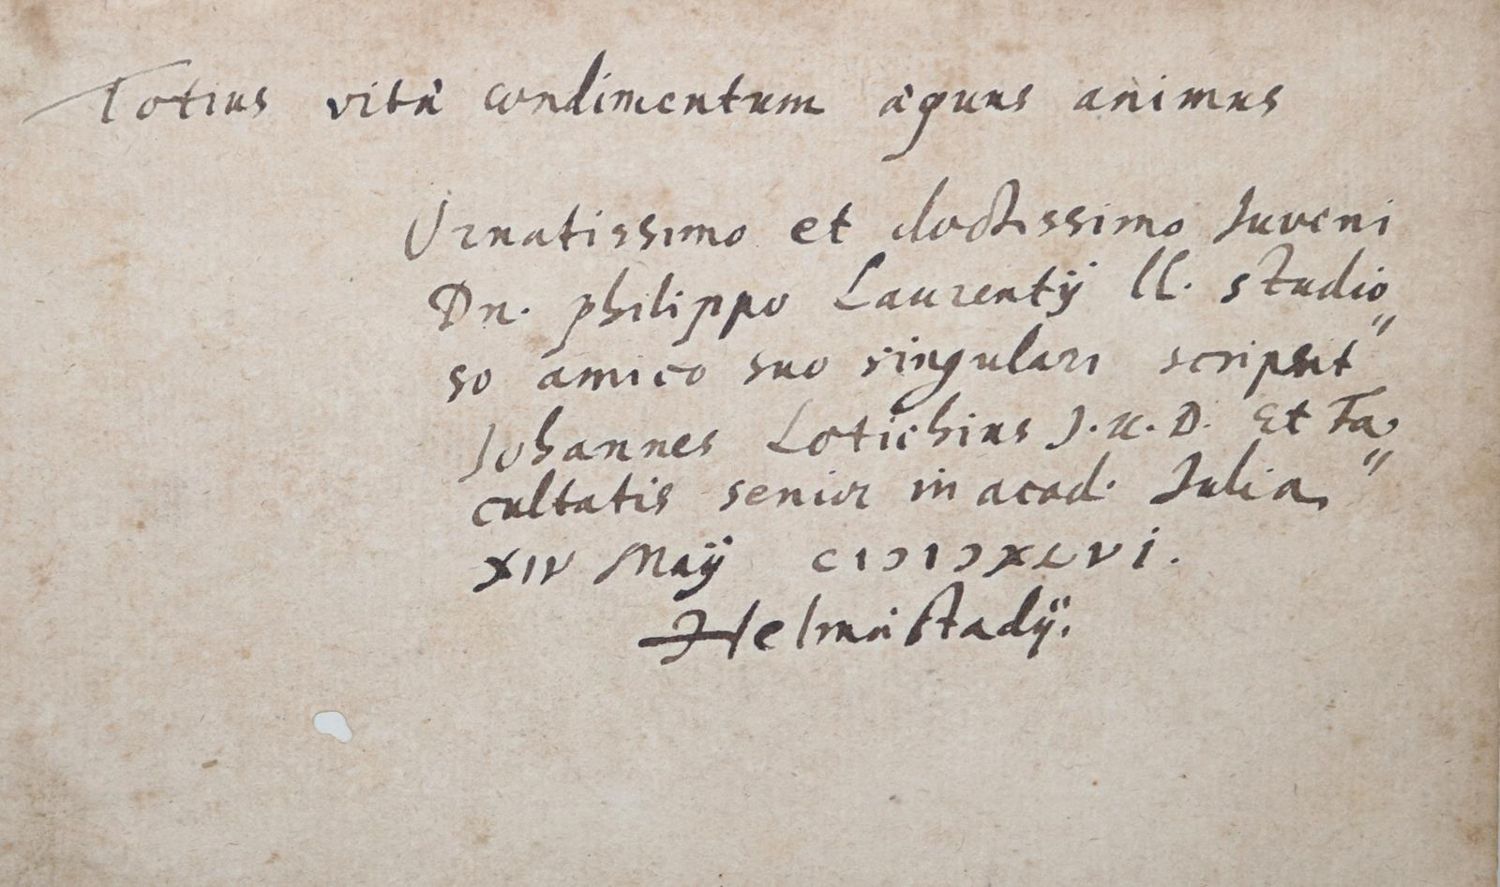 Totius vitæ condimentum æquus animus
Ornatissimo et doctissimo Iuveni
Dn. philippo Laurentij ll. studio„
so amico suo singulari scripsit
Johannes Lotichius J.U.D. Et Fa„
cultatis senior in acad. Julia,
XIV Maij CIƆIƆXLVI.
Helmæstadij.